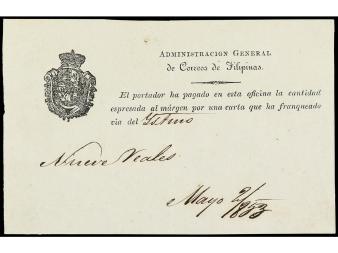 ADMINISTRACION GENERAL
de Correos de Filipinas.
El portador ha pagado en esta oficina la cantidad
espresada al márgen por una carta que ha franqueado
via del Ystmo
Nueve reales
Mayo 2/1853